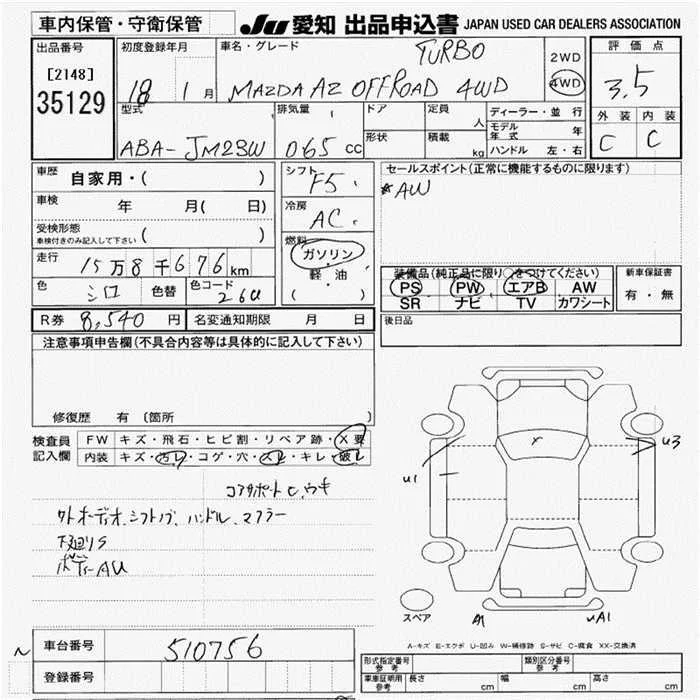 車内保管・守衛保管
JU 愛知 出品申込書 JAPAN USED CAR DEALERS ASSOCIATION
出品番号
[2148]
35129
初度登録年月
18 1 月
車名・グレード
TURBO
MAZDA AZ OFFROAD 4WD
2WD
4WD
評価点
3.5
外装 内装
C C
型式
ABA-JM23W
排気量
065 cc
ドア
形状
定員
人
積載
kg
ディーラー・並行
モデル年式 年
ハンドル 左・右
車歴 自家用・( )
車検 年 月( 日)
受検形態
車検付きのみ記入して下さい ( )
走行 15万8千676km
色 シロ 色替 色コード 26U
シフト
F5
冷房
AC
燃料
ガソリン
・
軽・油
( )
セールスポイント(正常に機能するものに限ります)
*AW
装備品(純正品に限り○をつけてください)
PS PW エアB AW
SR ナビ TV カワシート
新車保証書
有・無
R券 8,540 円 名変通知期限 月 日
後日品
注意事項申告欄(不具合内容等は具体的に記入して下さい)
修復歴 有 〔箇所
検査員
記入欄
FW キズ・飛石・ヒビ割・リペア跡・X要
内装 キズ・汚レ・コゲ・穴・スレ・キレ・破レ
コアサポートC、ウキ
外オーディオ、シフトノブ、ハンドル、マフラー
下廻りS
ボディーAU
U1
U3
スペア
A1
UA1
A-キズ E-エクボ U-凹み W-補修跡 S-サビ C-腐食 XX-交換済
車台番号 510756
登録番号
型式指定番号
参考
類別区分番号
参考
車庫証明用
参考
長さ cm 幅 cm 高さ cm